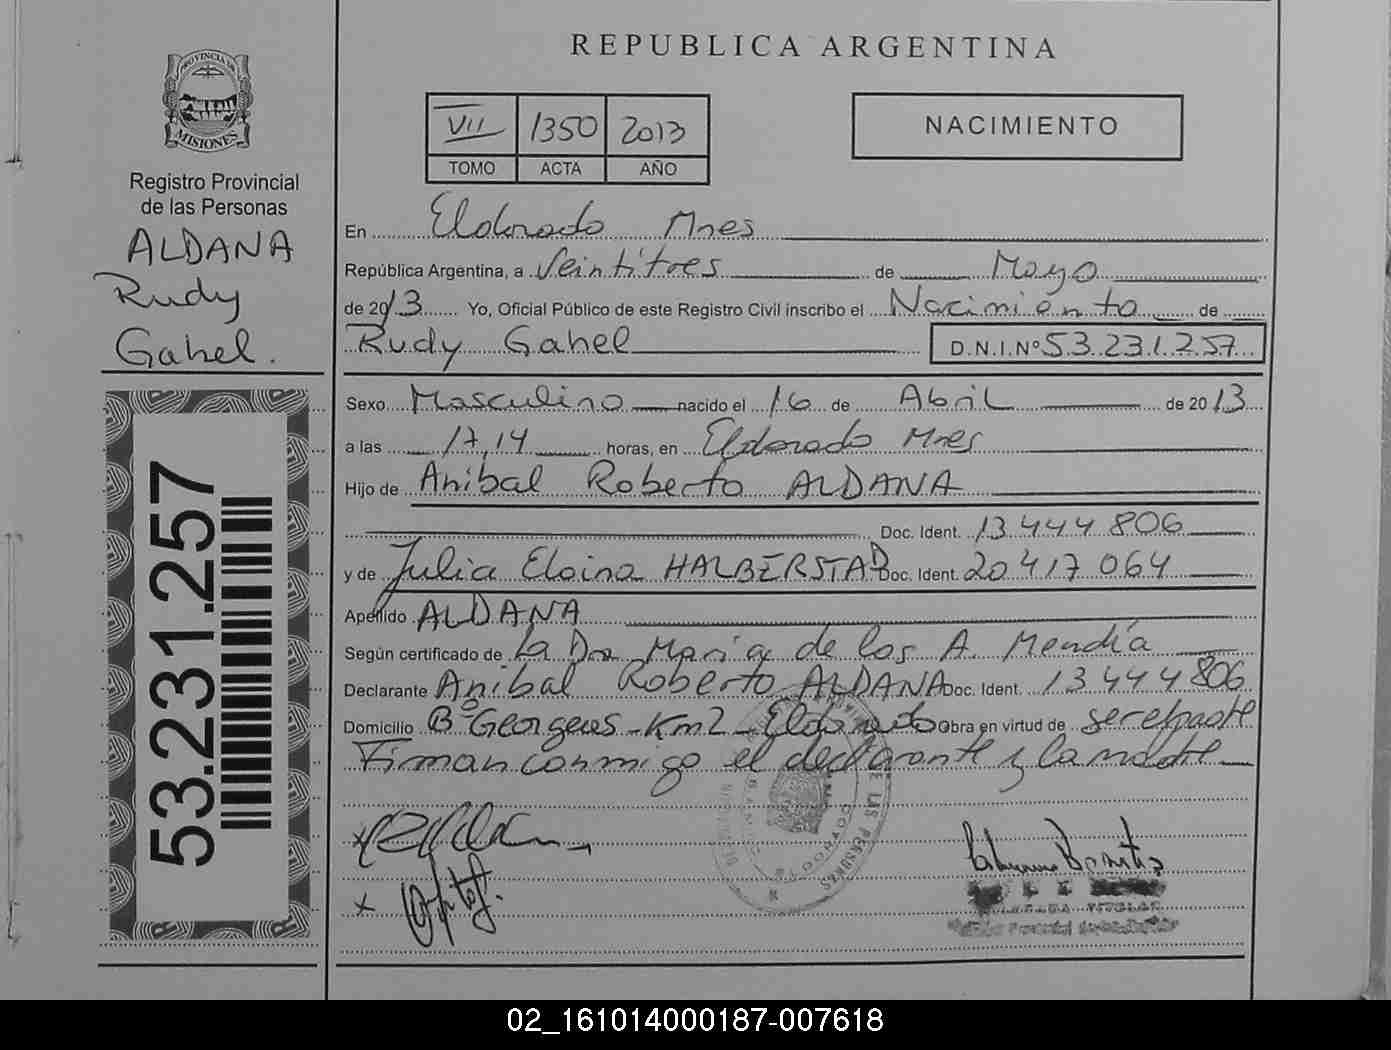 REPUBLICA ARGENTINA
PROVINCIA DE
MISIONES
Registro Provincial
de las Personas
ALDANA
Rudy
Gahel.
53.231.257
VII 1350 2013
TOMO ACTA AÑO
NACIMIENTO
En Eldorado Mnes
República Argentina, a Veintitres de Mayo
de 2013 Yo, Oficial Público de este Registro Civil inscribo el Nacimiento de
Rudy Gahel D.N.I.Nº 53.231.257
Sexo Masculino nacido el 16 de Abril de 2013
a las 17,14 horas, en Eldorado Mnes
Hijo de Anibal Roberto ALDANA
Doc. Ident. 13 444 806
y de Julia Eloina HALBERSTAD Doc. Ident. 20 417 064
Apellido ALDANA
Según certificado de La Dra Maria de los A. Mendía
Declarante Anibal Roberto ALDANA Doc. Ident. 13 444 806
Domicilio Bº Georgeus - Km2 - Eldorado Obra en virtud de ser el padre
Firman conmigo el declarante y la madre
x
x
DE LAS PERSONAS
TITULAR
02_161014000187-007618